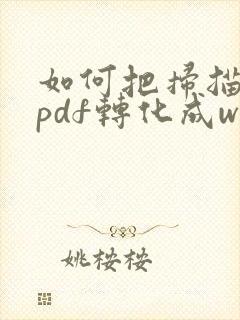 如何把掃描
pdf轉化成w
姚桉桉